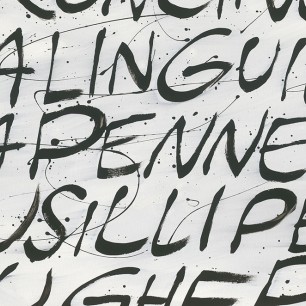 ALINGU
APENNE
USILLIPE
UGHE